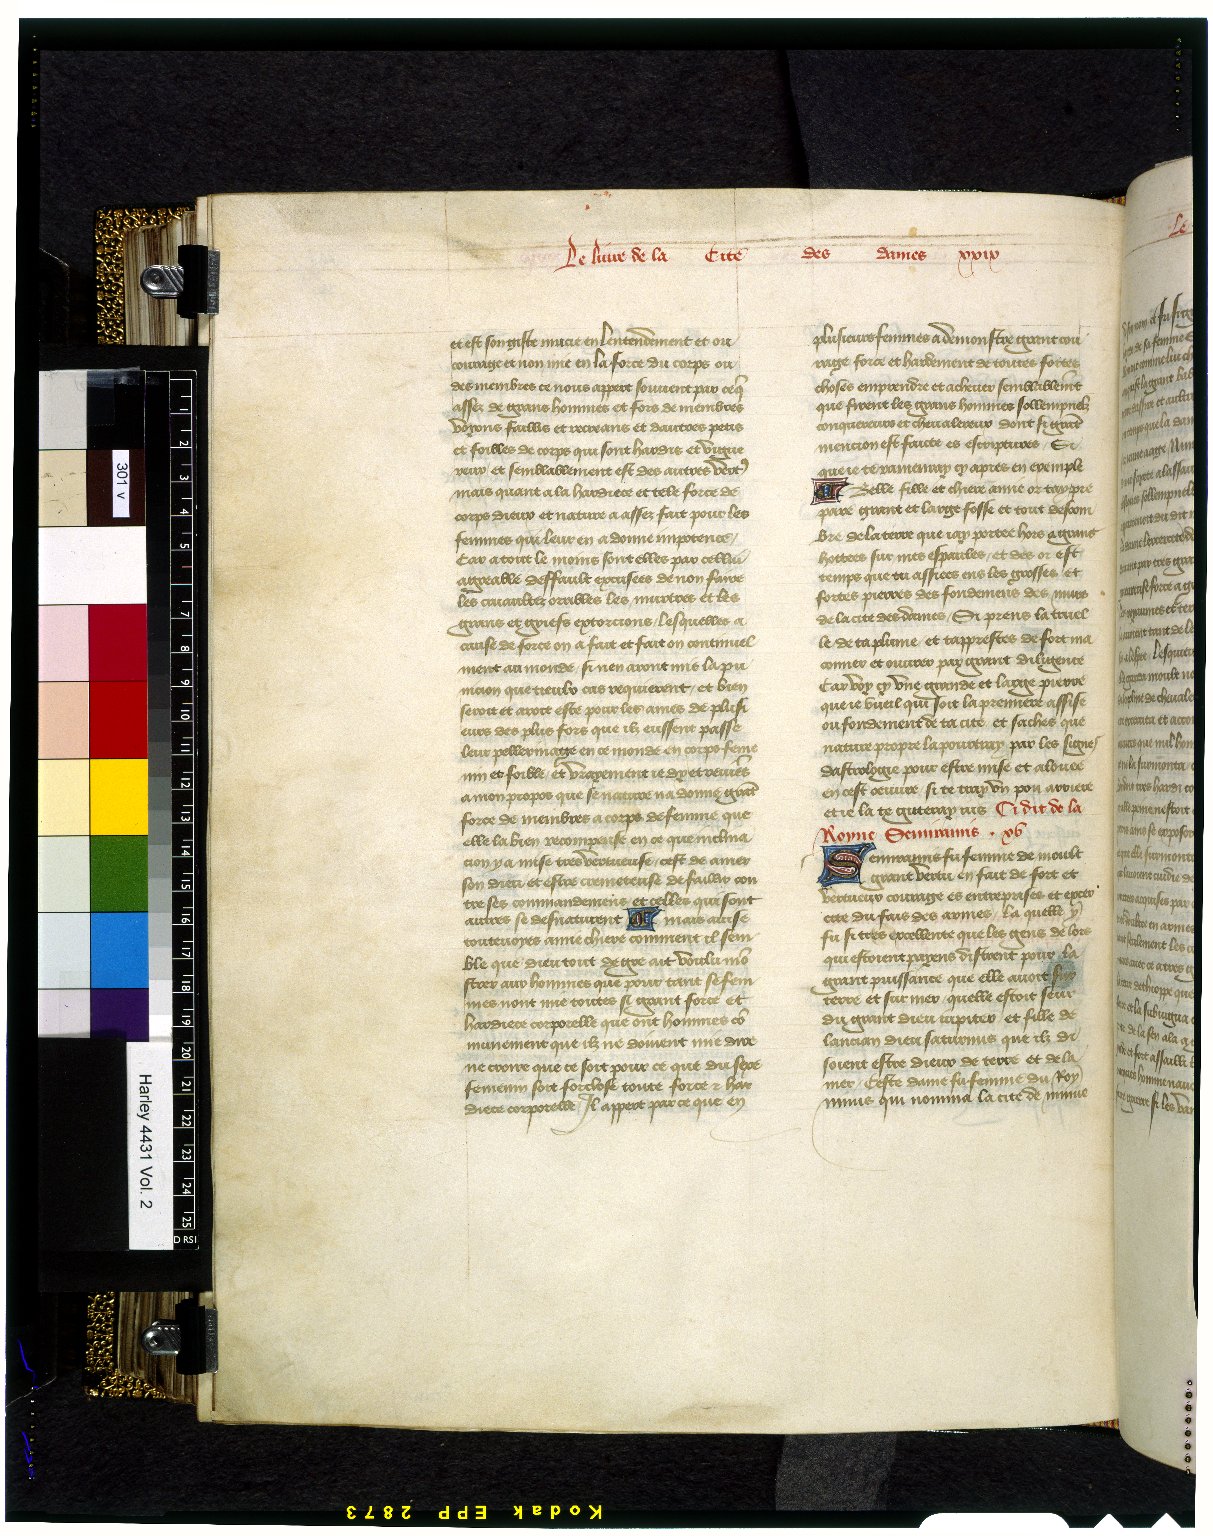 Le livre de la Cite des dames xxix
et est son giste mucie en lentendement et ou
courage et non mie en la force du corps ou
des membres ce nous appert souvent par ce q̄
assez de grans hommes et fors de membres
voyons faillis et recreans et dautres petis
et foibles de corps qui sont hardis et vigue
reux et semblablement est des autres vert9
mais quant a la hardiece et tele force de
corps dieux et nature a assez fait pour les
femmes qui leur en a donne impotence /
Car a tout le moins sont elles par cellui
aggreable deffault excusees de non faire
les cruaultez orribles les murtres et les
grans et griefs extorcions / lesquelles a
cause de force on a fait et fait on continuel
ment au monde / si nen aront mis la pu
nicion que tieulx cas requierent / et bien
seroit et aroit este pour les ames de plusi
eurs des plus fors que ilz eussent passe
leur pellerinaige en ce monde en corps feme
nin et foible / et vrayement ie dy et reviēs
a mon propos que se nature na donne grāt
force de membres a corps de femme que
elle la bien recompense en ce que inclina
cion y a mise tres vertueuse / cest de amer
son dieu et estre cremeteuse de faillir con
tre ses commandemens et celles qui sont
autres se desnaturent mais avise
toutevoyes amie chiere comment il sem
ble que dieu tout de gre ait voulu mō
strer aux hommes que pour tant se fem
mes nont mie toutes si grant force et
hardiece corporelle que ont hommes cō
munement que ilz ne doivent mie dire
ne croire que ce soit pour ce que du sexe
femenin soit forclose toute force et har
diece corporelle / Il appert par ce que en
plusieurs femmes a demonstre grant cou
rage force et hardement de toutes fortes
choses emprendre et achever semblablemēt
que firent les grans hommes sollempnelz
conquereurs et chevalereux dont si grāt
mencion est faicte es escriptures / Si
que ie te ramenray cy apres en exemple
Belle fille et chiere amie or tay pre
pare grant et large fosse et tout descom
bre de la terre que iay portee hors a grans
hottees sur mes espaules / et des or est
temps que tu assiees ens les grosses et
fortes pierres des fondemens des murs
de la cite des dames / Si prens la truel
le de ta plume / et tapprestes de fort ma
conner et ouvrer par grant diligence
Car voy cy vne grande et large pierre
que ie vueil qui soit la premiere assise
ou fondement de ta cite et saches que
nature propre la pourtray par les signes
dastrologie pour estre mise et alouee
en cest oeuvre / si te tray vn pou arriere
et ie la te giteray ius Ci dit de la
Royne Semiramis . xv
Semiramis fu femme de moult
grant vertu en fait de fort et
vertueux courage es entreprises et exer
cite du fais des armes / la quelle y
fu si tres excellente que les gens de lors
qui estoient payens distrent pour la
grant puissance que elle avoit sur
terre et sur mer / quelle estoit seur
du grant dieu iupiter et fille de
lancian dieu saturnus que ilz di
soient estre dieux de terre et de la
mer / Ceste dame fu femme du Roy
ninus qui nomma la cite de ninive
Le
301 v
Harley 4431 Vol. 2
1 2 3 4 5 6 7 8 9 10 11 12 13 14 15 16 17 18 19 20 21 22 23 24 25
Kodak EPP 2873